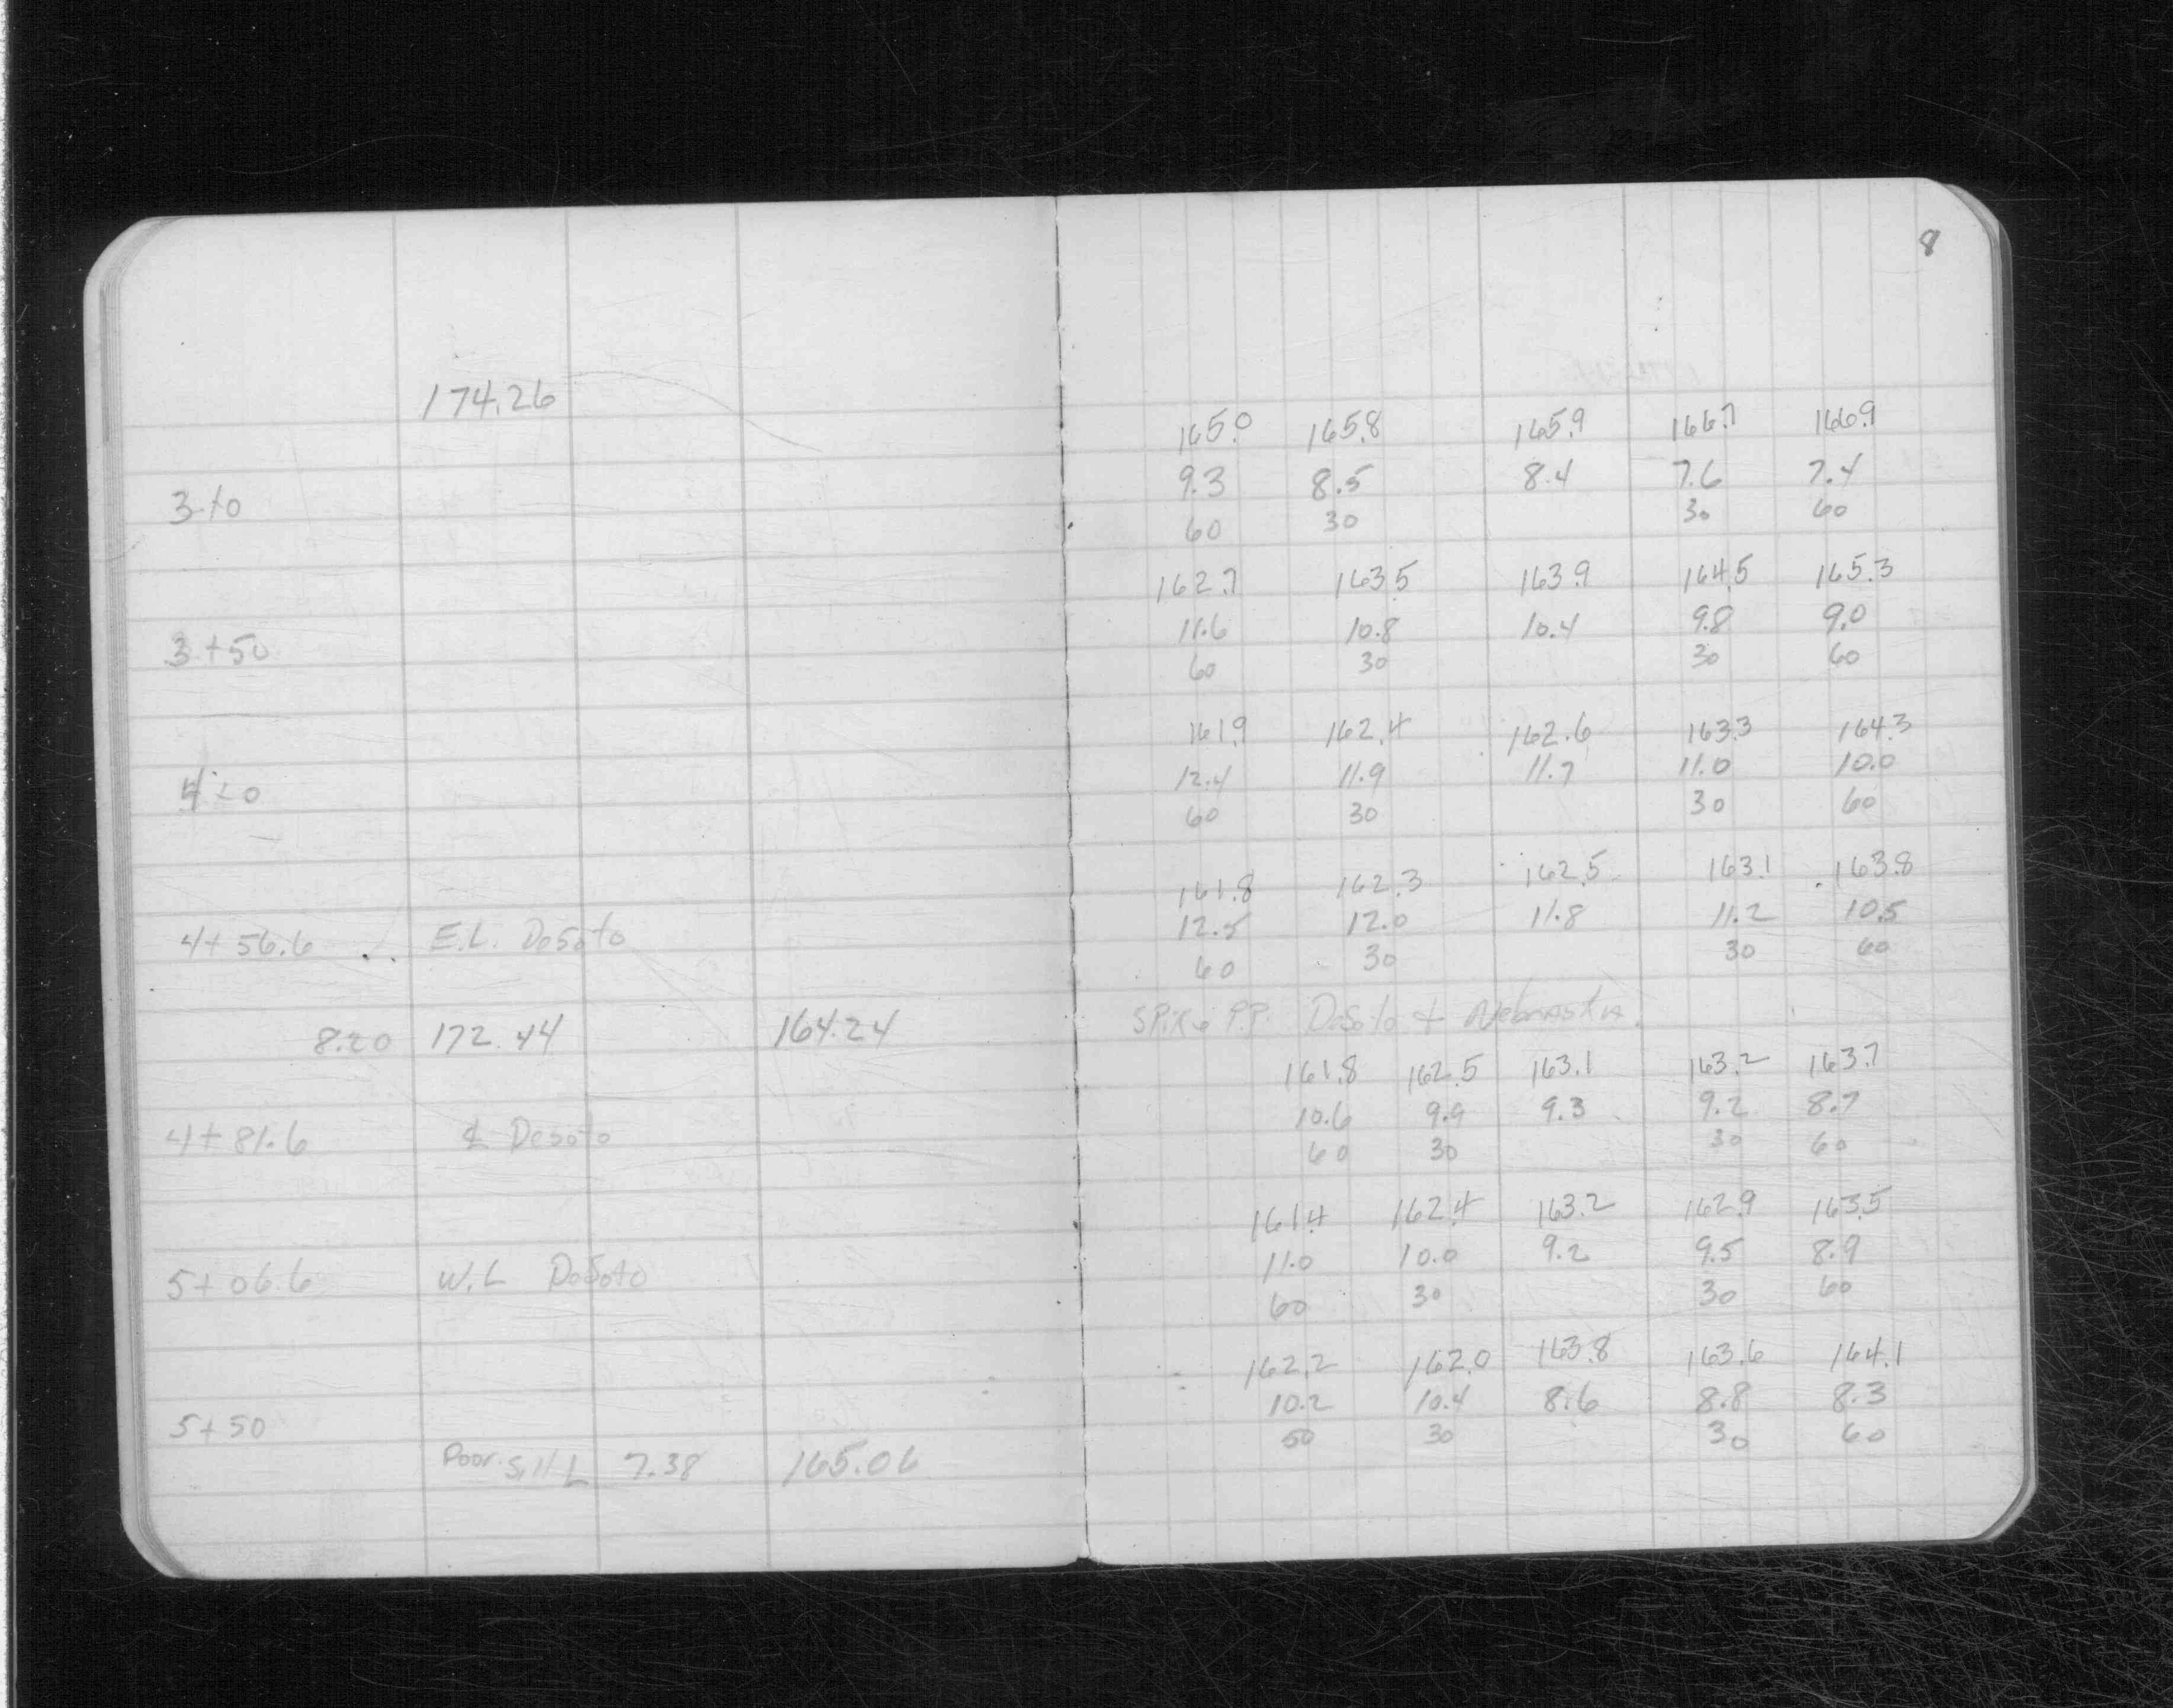 8
174.26
165.0 165.8 165.9 166.7 166.9
9.3 8.5 8.4 7.6 7.4
3+0
60 30 30 60
162.7 163.5 163.9 164.5 165.3
11.6 10.8 10.4 9.8 9.0
3+50
60 30 30 60
161.9 162.4 162.6 163.3 164.3
12.4 11.9 11.7 11.0 10.0
4+0
60 30 30 60
161.8 162.3 162.5 163.1 163.8
4+56.6 E.L. DeSoto 12.5 12.0 11.8 11.2 10.5
60 30 30 60
8.20 172.44 164.24 SPike P.P. DeSoto + Nebraska.
161.8 162.5 163.1 163.2 163.7
10.6 9.9 9.3 9.2 8.7
4+81.6 ℄ Desoto
60 30 30 60
161.4 162.4 163.2 162.9 163.5
11.0 10.0 9.2 9.5 8.9
5+06.6 W.L DeSoto
60 30 30 60
162.2 162.0 163.8 163.6 164.1
10.2 10.4 8.6 8.8 8.3
5+50
50 30 30 60
Door Sill L 7.38 165.06